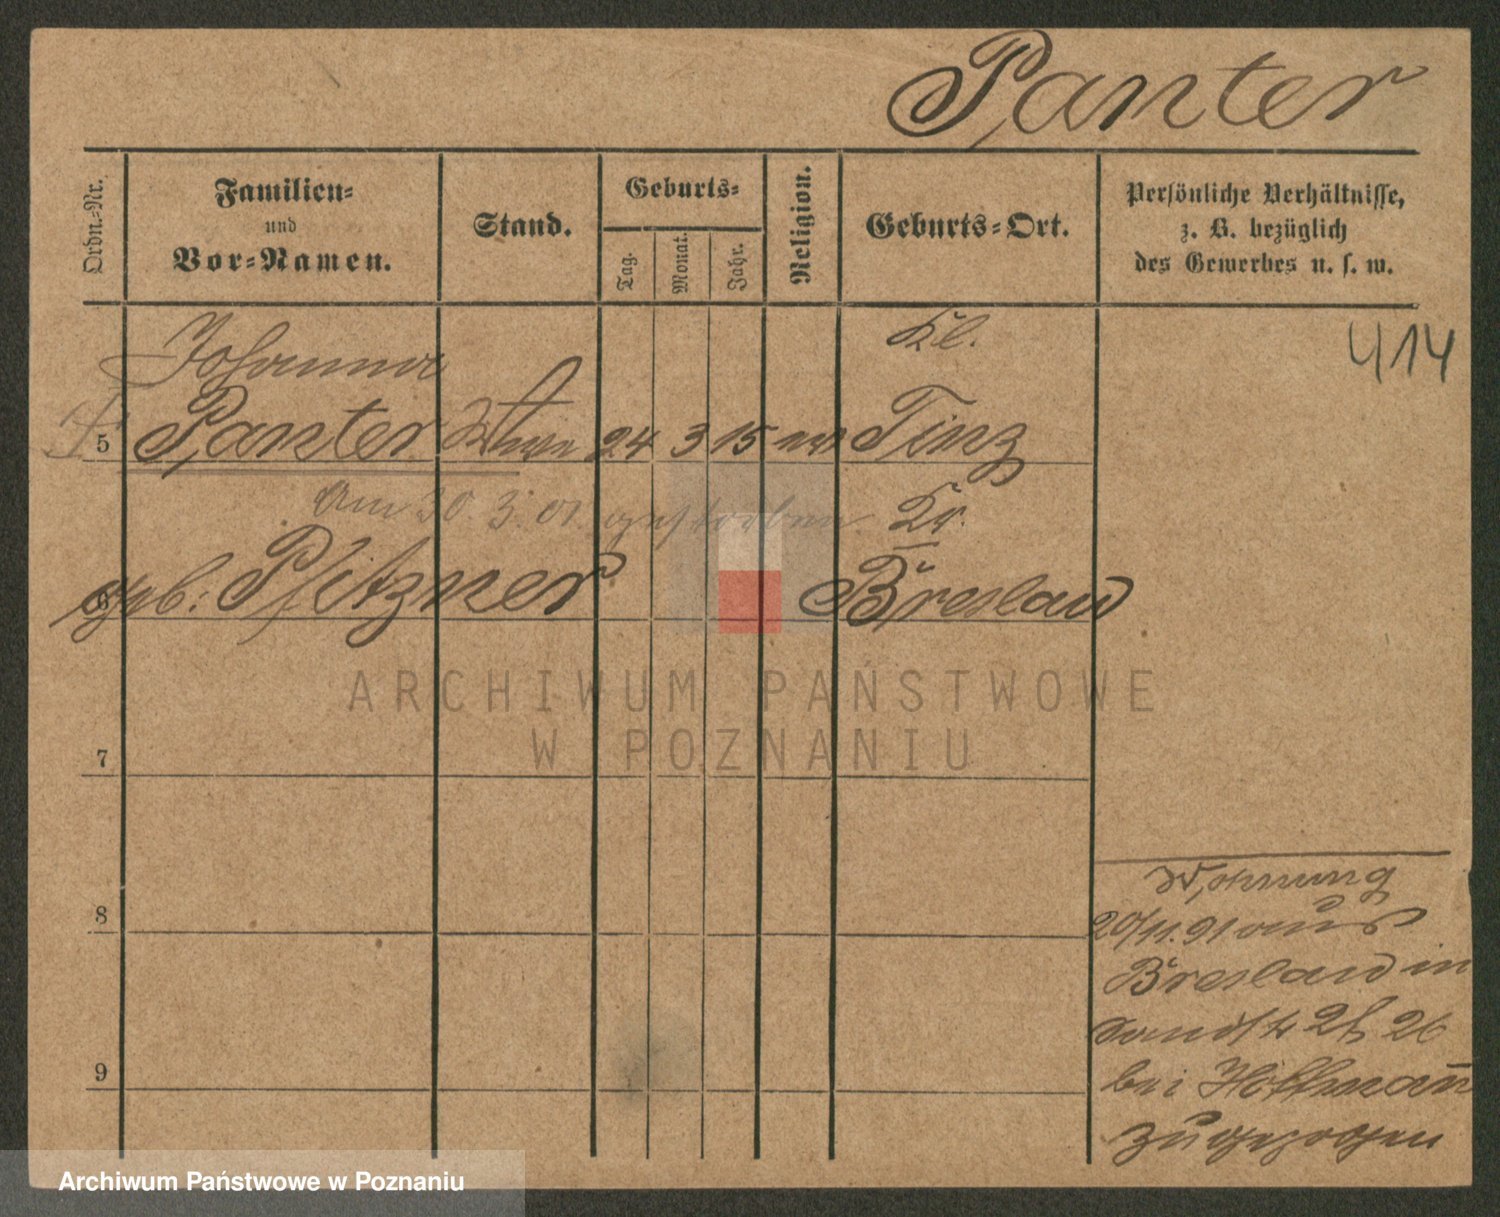 Panter
Ordn.-Nr.
Familien-
und
Vor-Namen.
Stand.
Geburts-
Tag.
Monat.
Jahr.
Religion.
Geburts-Ort.
Persönliche Verhältnisse,
z. B. bezüglich
des Gewerbes u. s. w.
414
Johanna
Kl.
5 Panter Wtwe 24 3 15 Tinz
Am 30. 3. 01. gestorben
Kr.
6 geb. Pfitzner Breslau
ARCHIWUM PAŃSTWOWE
W POZNANIU
7
8
9
Wohnung
20/11. 91 aus
Breslau in
Sandstr 26
bei Hoffmann
zugezogen
Archiwum Państwowe w Poznaniu